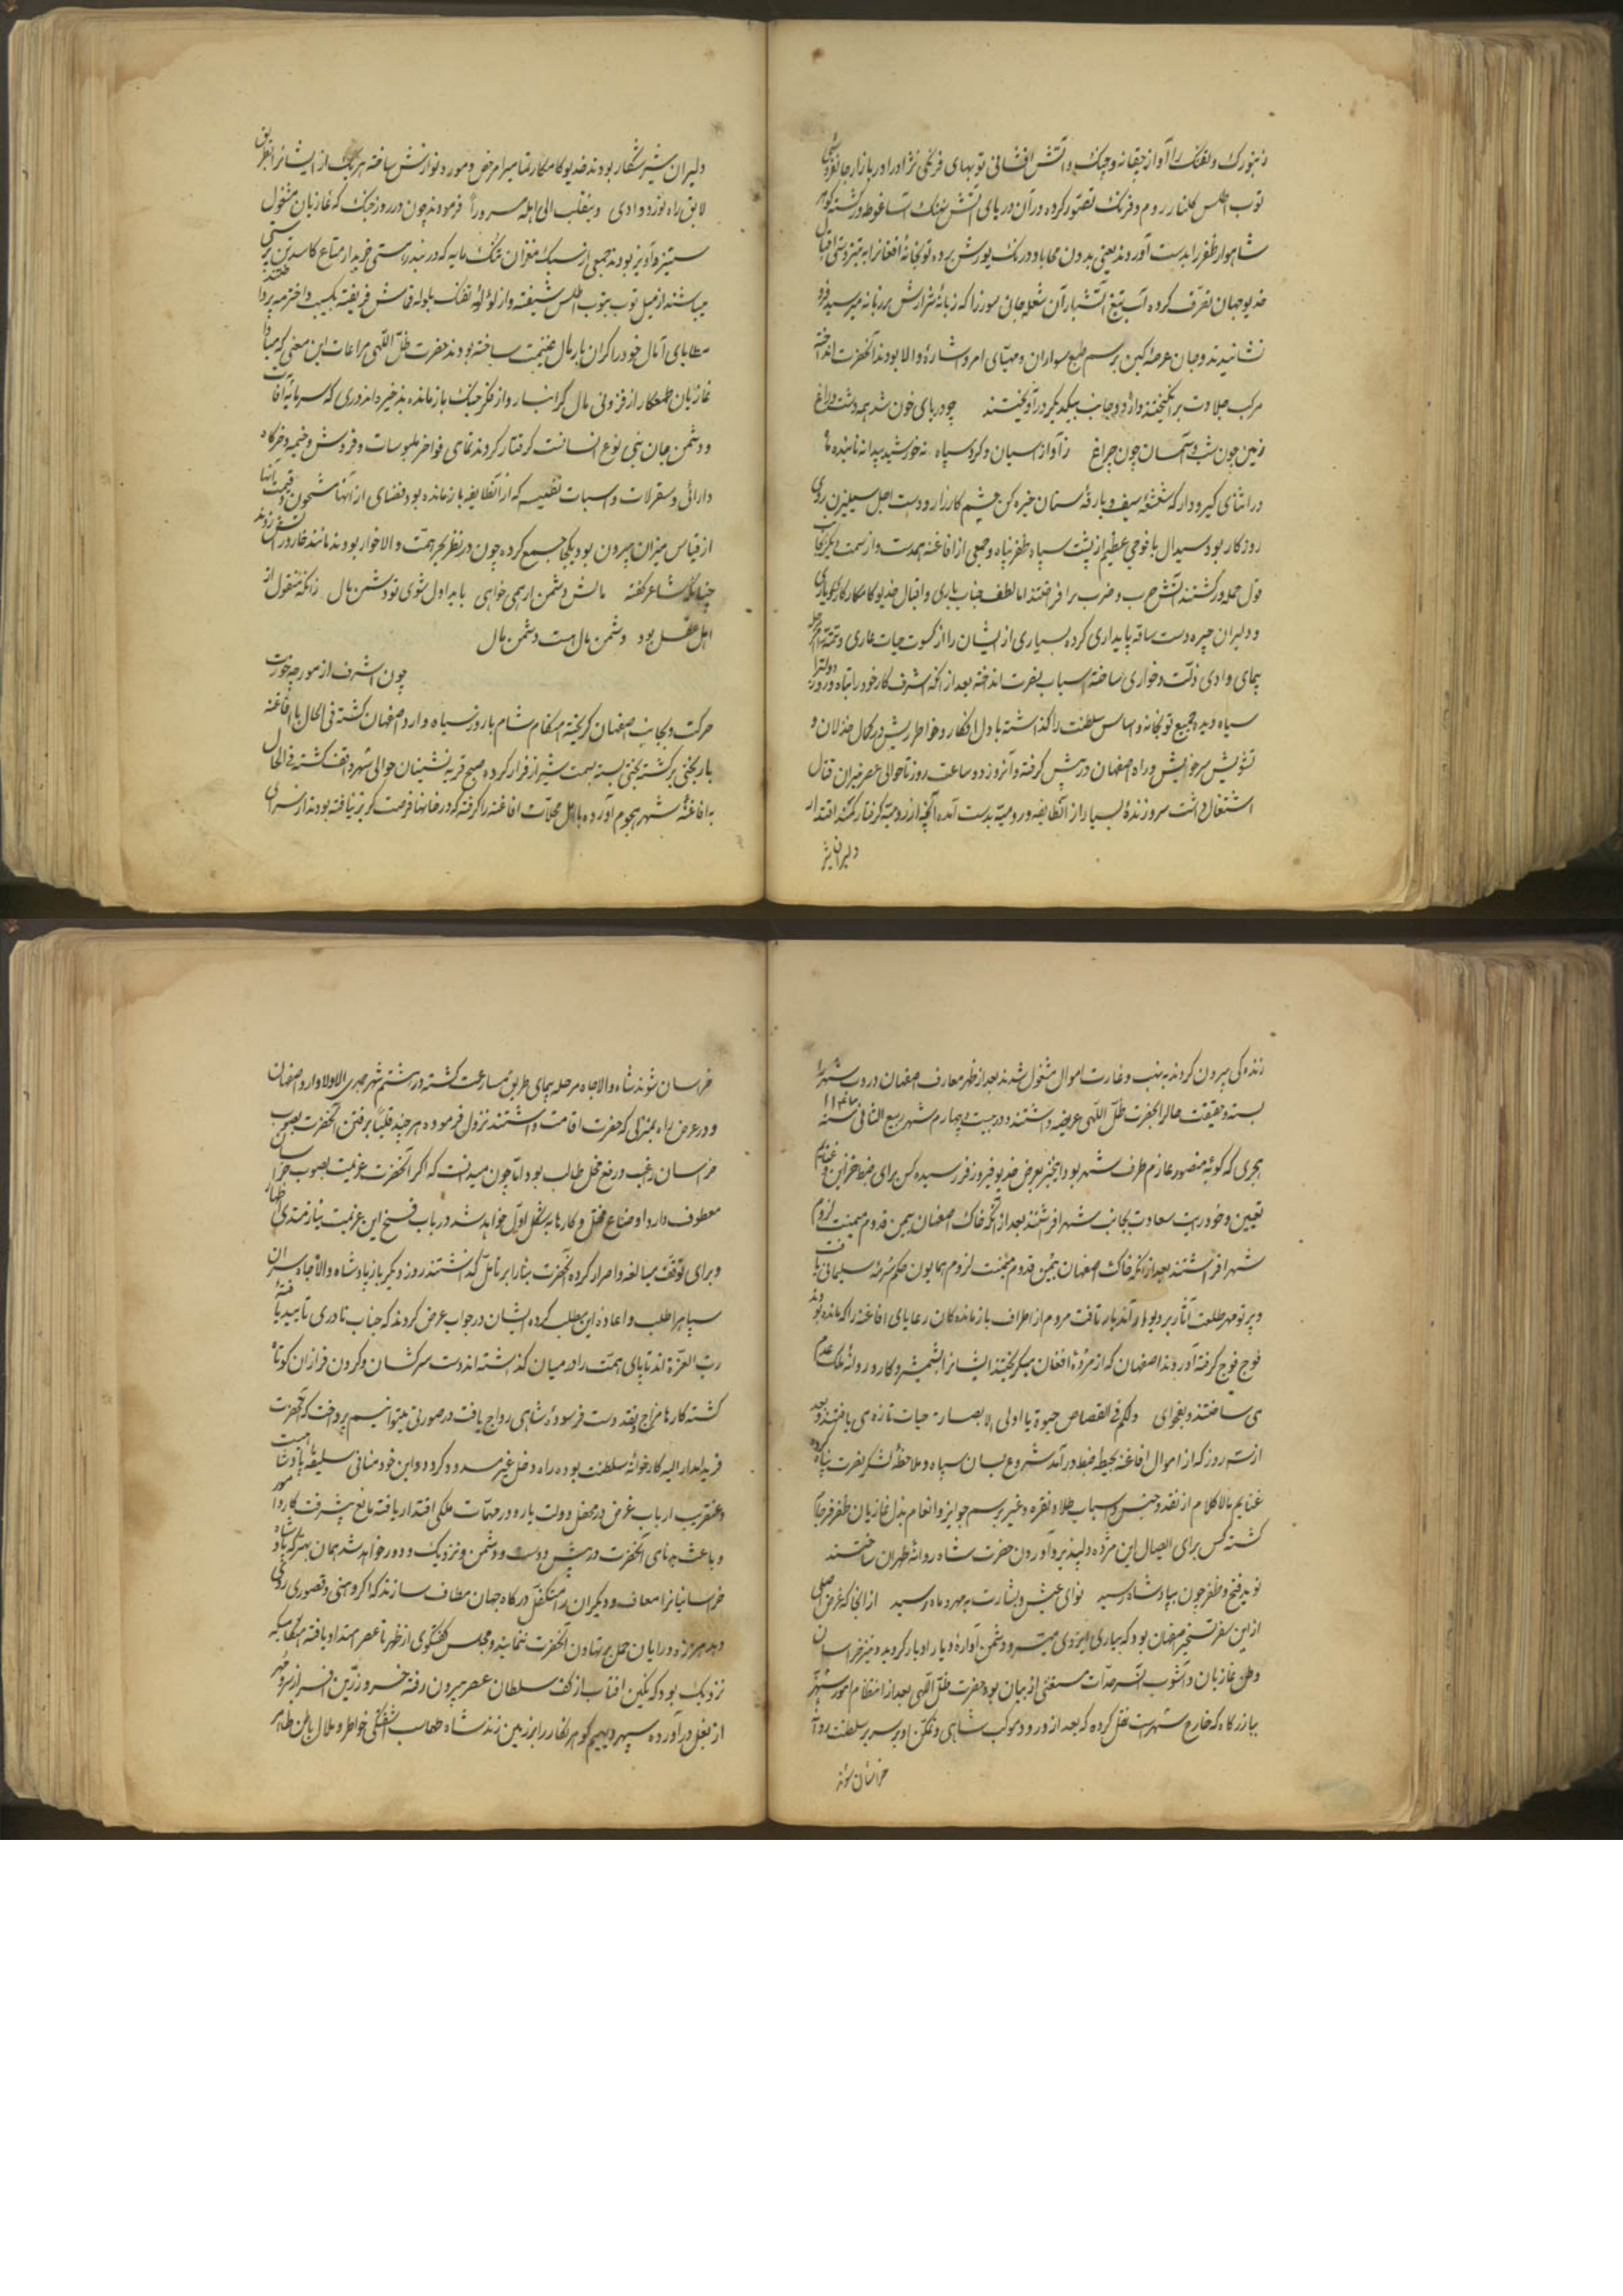 زنبورک و تفنک را آواز چغانه و چنک و آتش افشانی توبهای فرنکی نژاد را در بازار جانفروشی
توب اطلس کلنار روم و فرنک تصور کرده در آن دریای آتش نهنک آسا غوطه ور کشته کوهر
شاهوار ظفر را بدست آوردند یعنی بدون محابا و درنک یورش برده توپخانهٔ افغانرا به تیزدستی اقبال
خدیو جهان تصرف کرده آب تیغ آتشبار آن شعله جان سوز را که زبانهٔ شرارش بر زبانه میرسید فرو
نشانیدند و جان عرصهٔ کین بر سم طبع سواران و مهیای امر و اشارهٔ والا بودند آنحضرت انداخته
مرکب جلادت برانکیخته و از دو جانب بیکدیکر درآویختند چو دریای خون شد همه دشت و راغ
زمین چون شب و آسمان چون چراغ ز آواز اسبان و کرد سپاه نه خورشید پیدا نه تابنده ماه
در اثنای کیرودار که شعشعهٔ سیف و بارقهٔ سنان خیره کن چشم کارزار و دست اجل سیلی زن روی
روزکار بود سیدال با فوجی عظیم از پشت سپاه ظفر پناه و جمعی از افاغنه همدست و از سمت دیکر بجانب
قول حمله ور کشتند آتش حرب و ضرب برافروختند اما بلطف جناب باری و اقبال خدیو کامکار کارکر یاری
و دلیران چیره دست ساقه پایداری کرده بسیاری از ایشان را از کسوت حیات عاری و تتمه را مرحله
پیمای وادی ذلت و خواری ساخته اسباب نصرت انداخته بعد از آنکه اشرف کار خود را تباه و روز دولترا
سیاه دید جمیع توبخانه و اساس سلطنت را کذاشته با دل افکار و خاطر ریش در کمال خذلان و
تشویش سر خویش و راه اصفهان در پیش کرفته و آنروز دو ساعت روز تا حوالی عصر نیران قتال
اشتعال داشت سر و زندهٔ بسیار از آنطایفه و رومیه بدست آمده آنچه از رومیه کرفتار کمند اقتدار
دلیران شیر
دلیران شیر شکار بودند خدیو کامکار تمامیرا مرخص و مورد نوازش ساخته هر یک از ایشانرا بطریق
لایق راه نورد وادی و ینقلب الی اهله مسروراً فرمودند چون در روز جنک که غازیان مشغول
ستیز و آویز بودند جمعی از سبک مغزان تنک مایه که در بندر راستی خریدار متاع کاسدترین سستی
میباشند از میل توب بتوب اطلس شیفته و از لؤلؤ تفنک بلوله قماش فریفته بکسب و اخذ میپرداختند
مطایای آمال خود را کران بار مال غنیمت ساخته بودند حضرت ظل اللهی مراعات این معنی که مبادا
غازیان طمعکار از فزونی مال کرانبار و از فکر جنک باز مانده بذخیره اندوزی که سرمایهٔ آفات
و دشمن جان بنی نوع انسانست کرفتار کردند تمامی فواخر ملبوسات و فروش و خیمه و خرکاه
دارائی و سقرلات و اسباب نفیسه که از آنطایفه بازمانده بود و فضای از آنها مشحون و قیمت آنها
از قیاس میزان بیرون بود یکجا جمع کرده چون در نظر بحر همت والا خوار بودند مانند خار در آتش زدند
چنانکه شاعر کفته مالش دشمن ار همی خواهی باید اول شوی تو دشمن مال زانکه منقول از
اهل عقل بود دشمن مال هست دشمن مال
چون اشرف از مورچه خورت
حرکت و بجانب اصفهان کریخته هنکام شام با روز سیاه وارد اصفهان کشته فی الحال با افاغنه
بار بختی برکشته بختی بسته بسمت شیراز فرار کرده صبح قریه نشینان حوالی شهر واقف کشته فی الحال
به افاغنهٔ شهر هجوم آورده با اهل محلات افاغنه را کرفته که در خانها فرصت کریز نیافته بودند از سرای
زندکی بیرون کردند به نهب و غارت اموال مشغول شدند بعد از ظهر معارف اصفهان دروب شهر را
بسته و حقیقت حال را بحضرت ظل اللهی عریضه داشتند و در بیست و چهارم شهر ربیع الثانی سنه ۱۱۴۲
هجری که کوکبهٔ منصور عازم طرف شهر بود این خبر بعرض خدیو فیروز فر رسیده کس برای ضبط خزاین و غنایم
تعیین و خود رایت سعادت بجانب شهر افراشتند بعد از آنکه خاک اصفهان بیمن قدوم میمنت لزوم
شهر افراشتند بعد از آنکه خاک اصفهان بیمن قدوم میمنت لزوم همایون حکم سرمهٔ سلیمانی یافت
و پرتو مهر طلعت آثار بر در و بام آن دیار تافت مردم از اطراف بازماندکان رعایای افاغنه را که مانده بودند
فوج فوج کرفته آوردند اصفهان که از مردهٔ افغان میکریختند ایشانرا بشمشیر و کارد روانهٔ ملک عدم
می ساختند و بفحوای ولکم فی القصاص حیوة یا اولی الابصار حیات تازه می یافتند و بعد
از سه روز که از اموال افاغنه بحیطه ضبط در آمد شروع بسان سپاه و ملاحظهٔ لشکر نصرت پناه کرده
غنایم بالاکلام از نقد و جنس و اسباب طلا و نقره و غیره برسم جوایز و انعام بذل غازیان ظفر فرجام
کشته کس برای ایصال این مژدهٔ دلپذیر و آوردن حضرت شاه روانهٔ طهران ساختند
نوید فتح و ظفر چون بپادشاه رسید نوای عیش و بشارت بمهر و ماه رسید از آنجا که غرض اصلی
از این سفر تسخیر اصفهان بود که بیاری ایزدی میسر و دشمن آوارهٔ دیار ادبار کردید و نیز خراسان
وطن غازیان و آشوب آن سرحدات مستغنی از بیان بود حضرت ظل اللهی بعد از انتظام امور شهر
بباز رکاه که خارج شهرست نقل کرده که بعد از ورود موکب شاهی و تمکن او بر سریر سلطنت روانه
خراسان شوند
خراسان شوند شاه والاجاه مرحله پیمای طریق مسارعت کشته در هشتم شهر جمادی الاولا وارد اصفهان
و در عرض راه بمنزلی که حضرت اقامت داشتند نزول فرموده هر چند قلباً برفتن آنحضرت بصوب
خراسان راغب و رفع مخل طالب بود اما چون میدانست که اکر آنحضرت عزیمت بصوب خراسان
معطوف دارد اوضاع مختل و کارها بشکل اول خواهد شد در باب فسخ این عزیمت نیازمندی اظهار
و برای توقف مبالغه و اصرار کرده آنحضرت بنا را بر تامل کذاشتند روز دیکر باز پادشاه والاجاه سران
سپاه را طلب و اعادهٔ این مطلب کرده ایشان در جواب عرض کردند که جناب نادری تایید یافتهٔ
رب العزة اند تا پای همت را در میان کذاشته اند دست سرکشان و کردن فرازان کوتاه
کشته کارها رواج و نقد دست فرسودهٔ شاهی رواج یافت در صورتی میتوانیم پرداخت که آنحضرت
فرید امدار الیه کارخانهٔ سلطنت بوده راه دخل غیر مسدود کردد و این خود منافی سلیقهٔ پادشاهست
و عنقریب ارباب غرض در محفل دولت بار و در مهمات ملکی اقتدار یافته مانع پیشرفت کار و امور
و باعث بدنامی آنحضرت در پیش دوست و دشمن و نزدیک و دور خواهد شد همان بهتر که پادشاه
خراسانیانرا معاف و دیکران را متکفل درکاه جهان مطاف سازند که اکر وهنی و قصوری روی
دهد هر زه درایان حمل بر تهاون آنحضرت ننمایند و مجلس کفتکوی از ظهر تا عصر امتداد یافته هنکامیکه
نزدیک بود که نکین آفتاب از کف سلطان عصر بیرون رفته خسرو زرین افسر از سر و مهر
از بغل درآورده سپهر دیهیم کوهر نکار را بر زمین زند شاه طهماسب آشفتکی خاطر و ملال باطن ظاهر